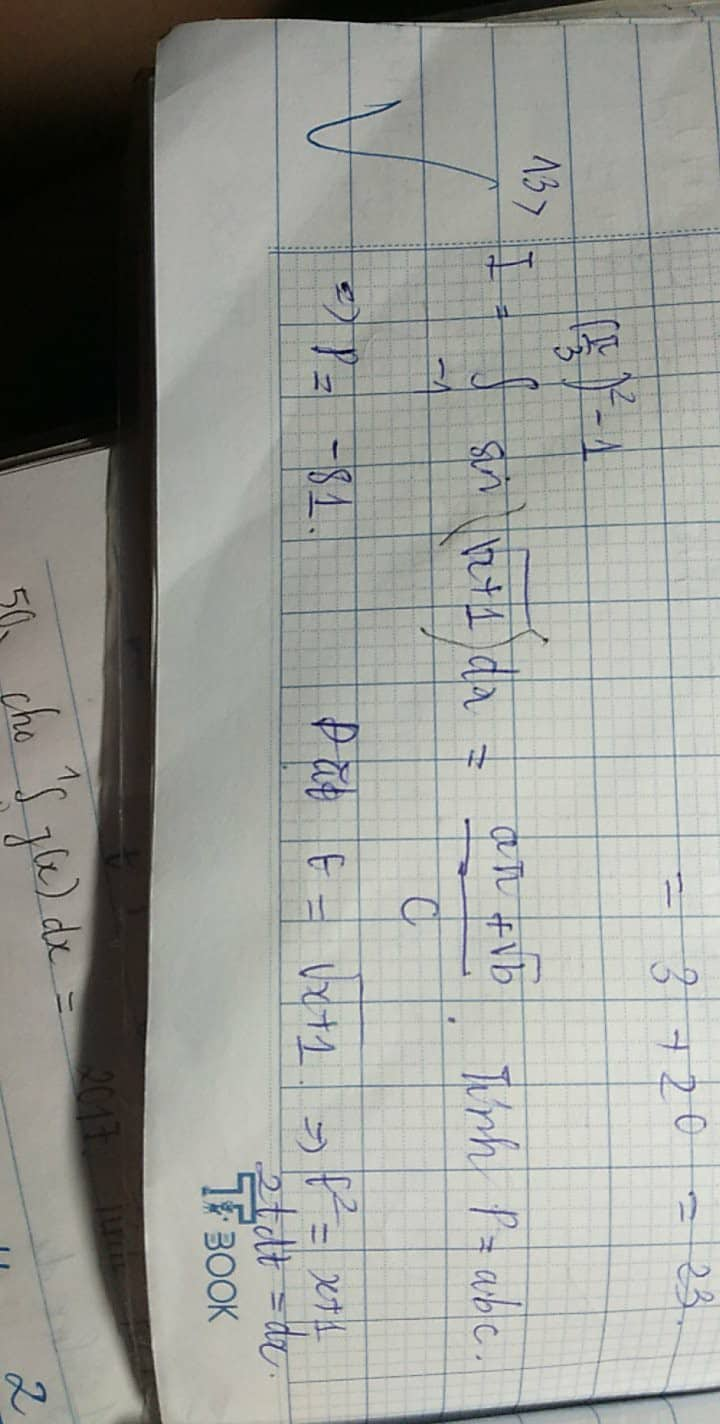 = 3 + 20 = 23.
13> I = ∫_{-1}^{(π/3)^2 - 1} sin(√x+1) dx = (aπ + √b)/C . Tính P = abc.
=) P = -81. Đặt t = √x+1 => t² = x+1
2tdt = dx.
BOOK
50, cho ∫ f(x) dx =
2017
2